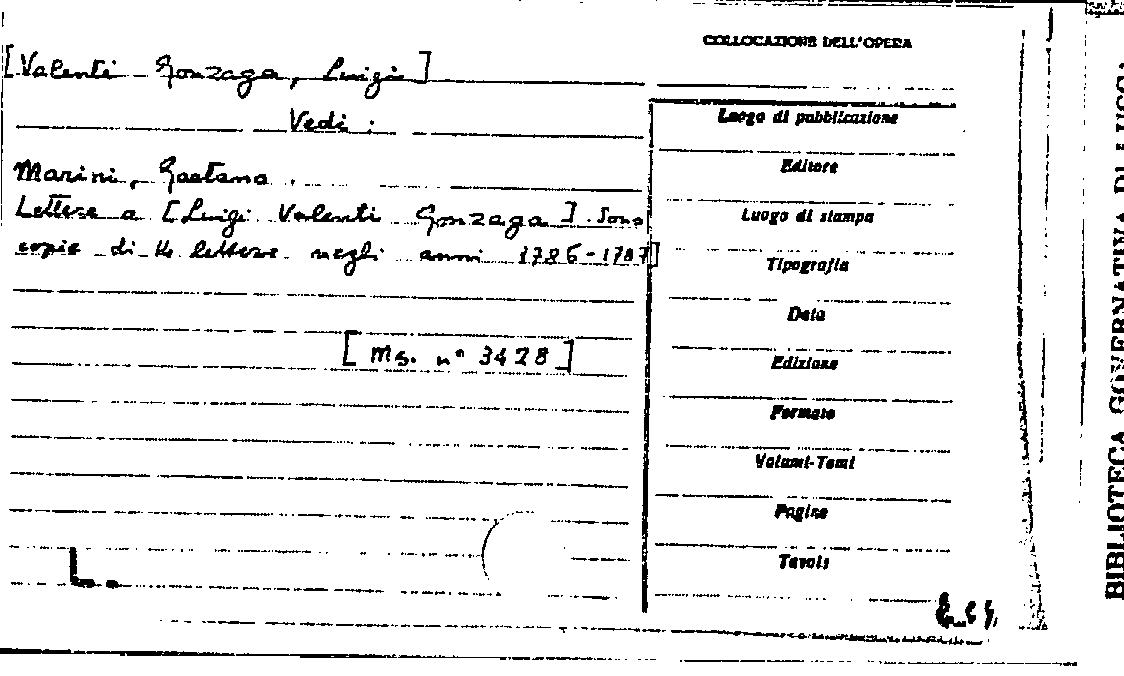 COLLOCAZIONE DELL'OPERA
[Valenti Gonzaga, Luigi]
Vedi:
Marini, Gaetano.
Lettere a [Luigi Valenti Gonzaga]. Sono
copie di 14 lettere negli anni 1786-1787]
[Ms. n° 3428]
Luogo di pubblicazione
Editore
Luogo di stampa
Tipografia
Data
Edizione
Formato
Volumi-Tomi
Pagine
Tavole
BIBLIOTECA GOVERNATIVA DI LUCCA